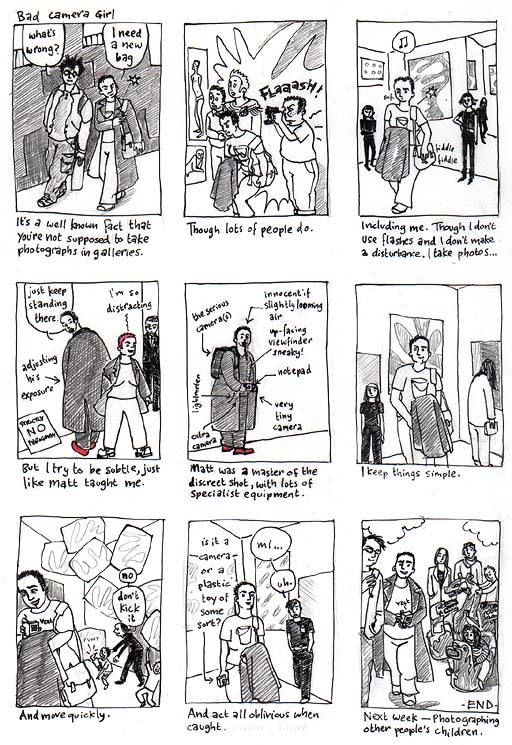 Bad camera Girl
what's
wrong?
I need
a new
bag
It's a well known fact that
you're not supposed to take
photographs in galleries.
FLAAASH!
Though lots of people do.
fiddle
fiddle
Including me. Though I don't
use flashes and I don't make
a disturbance. I take photos...
just keep
standing
there.
I'm so
distracting
adjusting
his
exposure
STRICTLY
NO
But I try to be subtle, just
like Matt taught me.
the serious
camera(s)
innocent if
slightly looming
air
up-facing
viewfinder
sneaky!
notepad
lightmeter
very
tiny
camera
extra
camera
Matt was a master of the
discreet shot, with lots of
specialist equipment.
I keep things simple.
no
don't
kick
it
And move quickly.
is it a
camera
or a
plastic
toy of
some
sort?
mi...
uh.
And act all oblivious when
caught.
-END-
Next week — Photographing
other people's children.